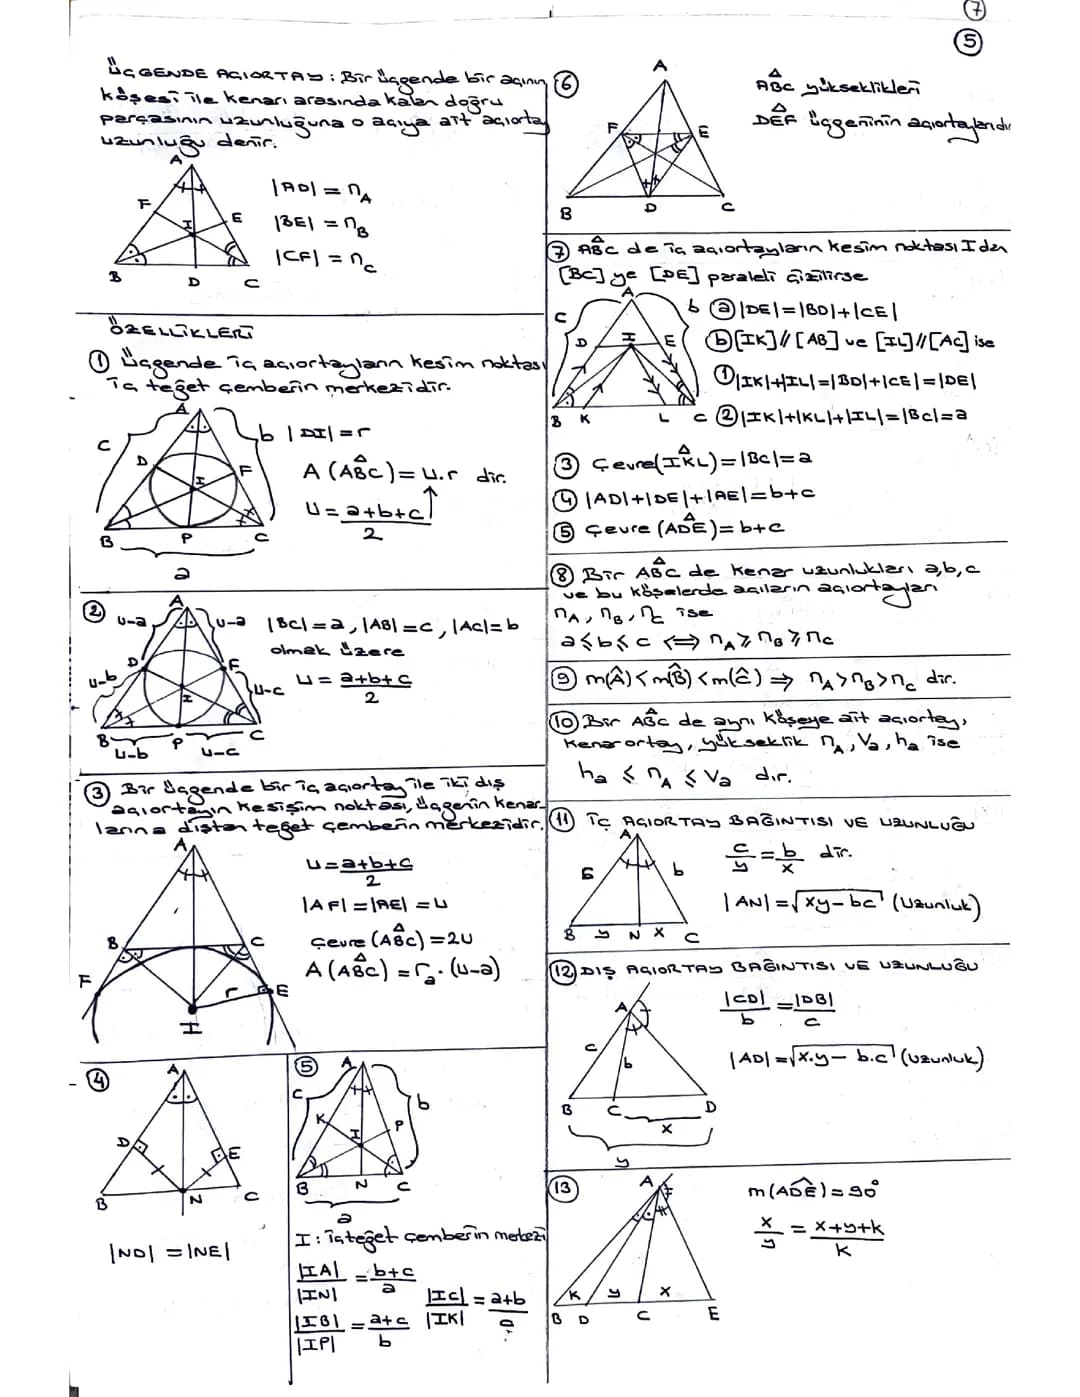 7
5
ÜÇGENDE AÇIORTAY: Bir üçgende bir açının
köşesi ile kenarı arasında kalan doğru
parçasının uzunluğuna o açıya ait açıortay
uzunluğu denir.
A
F
E
I
B
D
C
|AD| = n_A
|BE| = n_B
|CF| = n_C
ÖZELLİKLERİ
① Üçgende iç açıortayların kesim noktası
iç teğet çemberin merkezidir.
A
c
b
D
F
I
B
P
C
a
|DI| = r
A(ABC) = u.r dir.
u = a+b+c
2
②
A
u-a
u-a
D
F
u-b
u-c
I
B
P
C
u-b
u-c
|BC| = a, |AB| = c, |AC| = b
olmak üzere
u = a+b+c
2
③ Bir üçgende bir iç açıortay ile iki dış
açıortayın kesişim noktası, üçgenin kenar-
larına dıştan teğet çemberin merkezidir.
A
B
C
F
E
r
I
u = a+b+c
2
|AF| = |AE| = u
Çevre (ABC) = 2u
A(ABC) = r_a . (u-a)
④
A
D
E
B
N
C
|ND| = |NE|
⑤
A
c
b
K
P
I
B
N
C
a
I: İçteğet çemberin merkezi
|IA| / |IN| = b+c / a
|IC| / |IK| = a+b / c
|IB| / |IP| = a+c / b
⑥
A
F
E
B
D
C
ABC yükseklikleri
DEF üçgeninin açıortaylarıdır
⑦ ABC de iç açıortayların kesim noktası I den
[BC] ye [DE] paraleli çizilirse
A
c
b
D
I
E
B
K
L
C
ⓐ |DE| = |BD| + |CE|
ⓑ [IK] // [AB] ve [IL] // [AC] ise
① |IK| + |IL| = |BD| + |CE| = |DE|
② |IK| + |KL| + |IL| = |BC| = a
③ Çevre(IKL) = |BC| = a
④ |AD| + |DE| + |AE| = b+c
⑤ Çevre (ADE) = b+c
⑧ Bir ABC de kenar uzunlukları a,b,c
ve bu köşelerde açıların açıortayları
n_A, n_B, n_C ise
a ≤ b ≤ c ⟺ n_A ≥ n_B ≥ n_C
⑨ m(Â) < m(B̂) < m(Ĉ) ⇒ n_A > n_B > n_C dir.
⑩ Bir ABC de aynı köşeye ait açıortay,
kenarortay, yükseklik n_A, V_a, h_a ise
h_a ≤ n_A ≤ V_a dır.
⑪ İÇ AÇIORTAY BAĞINTISI VE UZUNLUĞU
A
b
B
y
N
x
C
c / y = b / x dir.
|AN| = √xy - bc (Uzunluk)
⑫ DIŞ AÇIORTAY BAĞINTISI VE UZUNLUĞU
A
c
b
B
C
D
x
y
|CD| / b = |DB| / c
|AD| = √x.y - b.c (Uzunluk)
⑬
A
K
y
x
B
D
C
E
m(ADE) = 90°
x / y = x+y+k / k